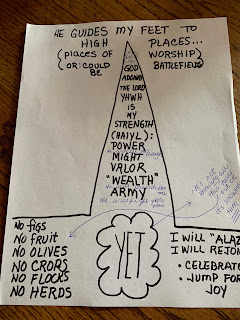 HE GUIDES MY FEET TO
HIGH PLACES...
(PLACES OF WORSHIP)
(OR COULD BE BATTLEFIELD)
GOD
ADONAI
THE LORD
YHWH
IS MY
STRENGTH
(HAIYL):
POWER
MIGHT
VALOR
"WEALTH"
ARMY
He will fight for
you
NO figs
NO FRUIT
NO OLIVES
NO CROPS
NO FLOCKS
NO HERDS
YET
I WILL "ALAZ
I WILL REJOI
• CELEBRATE
• JUMP FOR
JOY